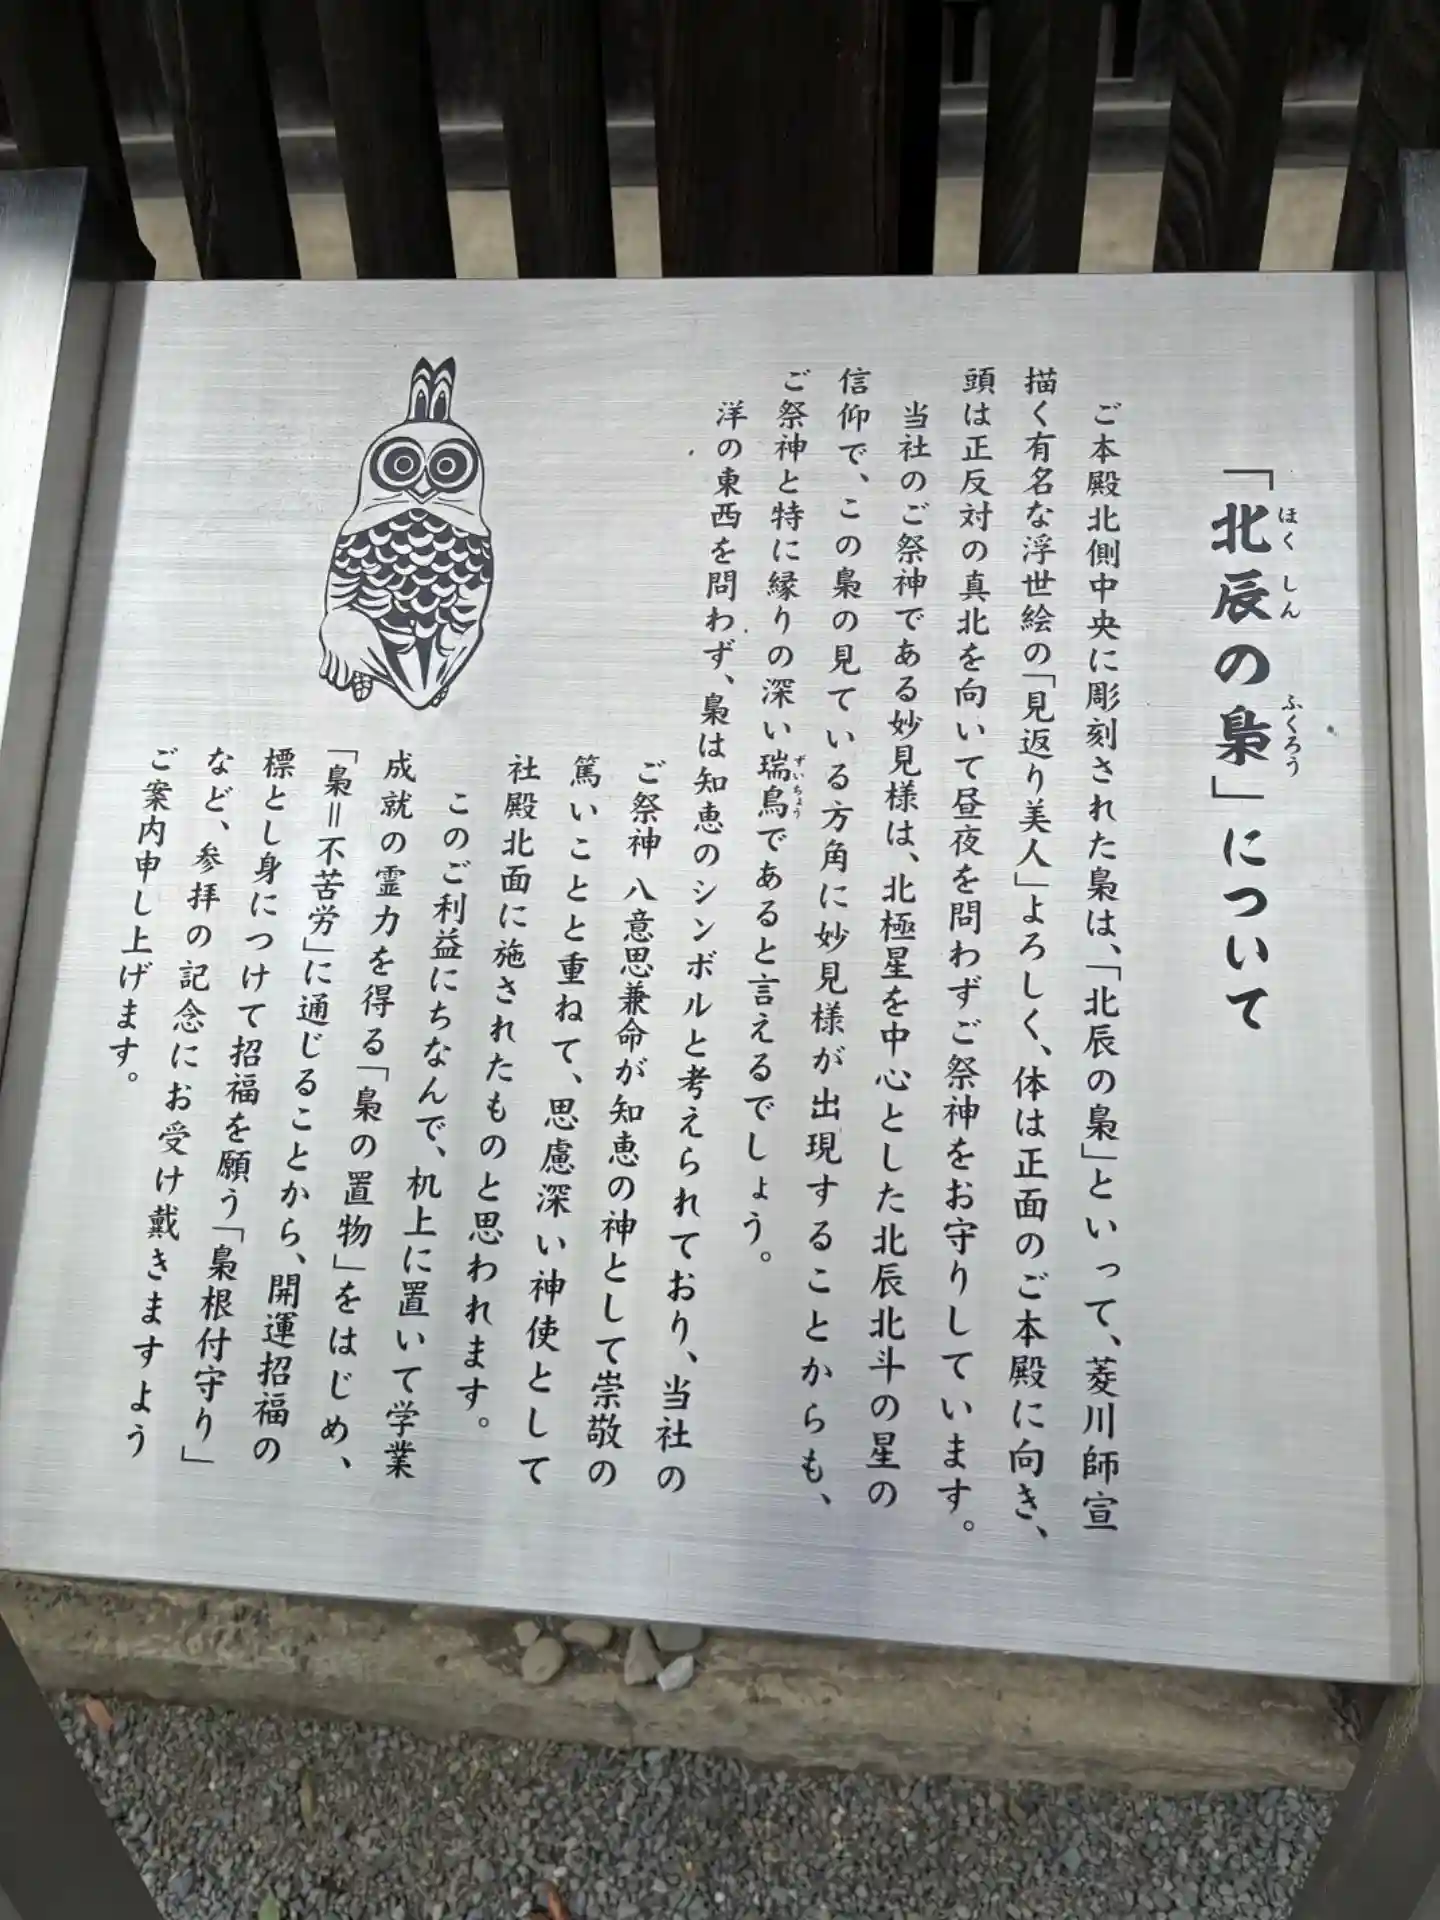 「北辰の梟」について
ほくしん
ふくろう
ご本殿北側中央に彫刻された梟は、「北辰の梟」といって、菱川師宣
描く有名な浮世絵の「見返り美人」よろしく、体は正面のご本殿に向き、
頭は正反対の真北を向いて昼夜を問わずご祭神をお守りしています。
当社のご祭神である妙見様は、北極星を中心とした北辰北斗の星の
信仰で、この梟の見ている方角に妙見様が出現することからも、
ご祭神と特に縁りの深い瑞鳥であると言えるでしょう。
ずいちょう
洋の東西を問わず、梟は知恵のシンボルと考えられており、当社の
ご祭神 八意思兼命が知恵の神として崇敬の
篤いことと重ねて、思慮深い神使として
社殿北面に施されたものと思われます。
このご利益にちなんで、机上に置いて学業
成就の霊力を得る「梟の置物」をはじめ、
「梟=不苦労」に通じることから、開運招福の
標とし身につけて招福を願う「梟根付守り」
など、参拝の記念にお受け戴きますよう
ご案内申し上げます。